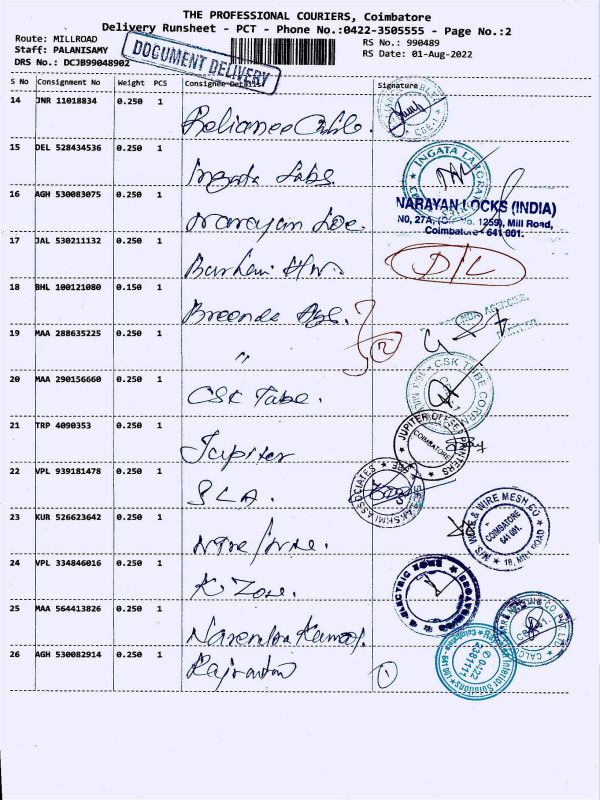 THE PROFESSIONAL COURIERS, Coimbatore
Delivery Runsheet - PCT - Phone No.:0422-3505555 - Page No.:2
Route: MILLROAD
RS No.: 990489
Staff: PALANISAMY
RS Date: 01-Aug-2022
DRS No.: DCJB99048902
DOCUMENT DELIVERY
S No Consignment No Weight PCS Consignee Details Signature
14 JNR 11018834 0.250 1
Reliance
15 DEL 528434536 0.250 1
Ingata Labs.
INGATA
16 AGH 530083075 0.250 1
Narayan Loc.
NARAYAN LOCKS (INDIA)
NO, 27A, 1259), Mill Road,
Coimbatore - 641 001.
17 JAL 530211132 0.250 1
D/L
18 BHL 100121080 0.150 1
19 MAA 288635225 0.250 1
"
2
20 MAA 290156660 0.250 1
CSK Tube.
CSK TUBE CORPN
21 TRP 4090353 0.250 1
Jupiter
JUPITER OFFSET PRINTERS
COIMBATORE
22 VPL 939181478 0.250 1
SLA.
ASSOCIATES
23 KUR 526623642 0.250 1
WIRE & WIRE MESH CO
COIMBATORE
641 001.
24 VPL 334846016 0.250 1
K Zone.
ELECTRIC ZONE
25 MAA 564413826 0.250 1
Narendra Kumar.
26 AGH 530082914 0.250 1
Rajratan
1
0422
2381111
Interior Solutions